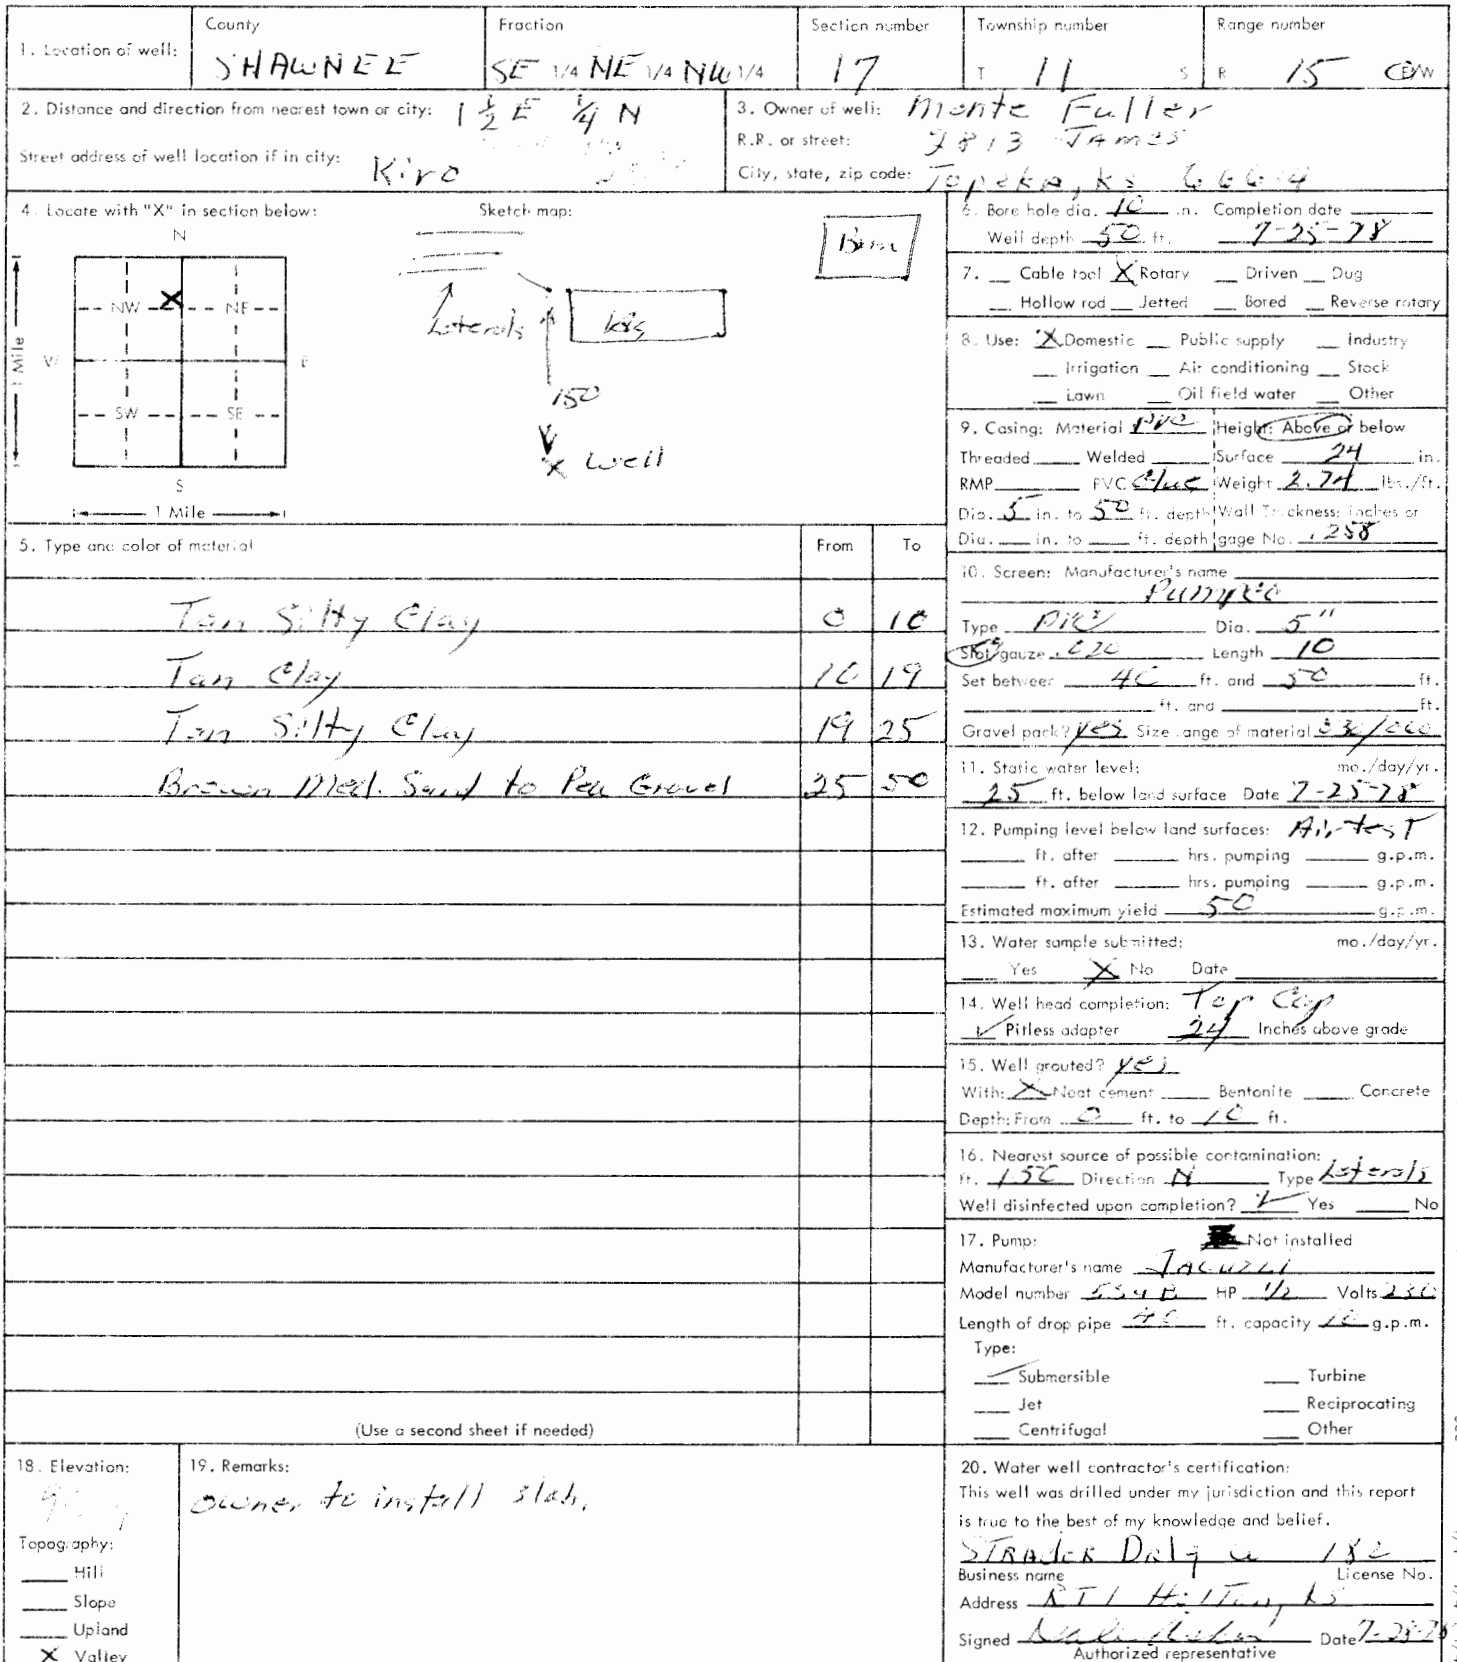 1. Location of well:
County
SHAWNEE
Fraction
SE 1/4 NE 1/4 NW 1/4
Section number
17
Township number
T 11 S
Range number
R 15 E/W
2. Distance and direction from nearest town or city: 1 1/2 E 1/4 N
Street address of well location if in city: Kiro
3. Owner of well: Monte Fuller
R.R. or street: James
City, state, zip code: Topeka, Ks
4. Locate with "X" in section below:
Sketch map:
N
NW X NE
W E
SW SE
S
1 Mile
1 Mile
Barn
Laterals
150
X Well
5. Type and color of material From To
Tan Silty Clay 0 10
Tan Clay 10 19
Tan Silty Clay 19 25
Brown Med. Sand to Pea Gravel 25 50
(Use a second sheet if needed)
6. Bore hole dia. 10 in. Completion date
Well depth 50 ft. 7-25-78
7. __ Cable tool X Rotary __ Driven __ Dug
__ Hollow rod __ Jetted __ Bored __ Reverse rotary
8. Use: X Domestic __ Public supply __ Industry
__ Irrigation __ Air conditioning __ Stock
__ Lawn __ Oil field water __ Other
9. Casing: Material PVC Height: Above or below
Threaded __ Welded __ Surface 24 in.
RMP __ PVC Glue Weight 2.74 lbs./ft.
Dia. 5 in. to 50 ft. depth Wall Thickness: inches or
Dia. __ in. to __ ft. depth gage No. .258
10. Screen: Manufacturer's name
Pumpco
Type PVC Dia. 5"
Slot/gauze .020 Length 10
Set between 40 ft. and 50 ft.
__ ft. and __ ft.
Gravel pack? yes Size range of material
11. Static water level: mo./day/yr.
25 ft. below land surface Date 7-25-78
12. Pumping level below land surfaces: Air test
__ ft. after __ hrs. pumping __ g.p.m.
__ ft. after __ hrs. pumping __ g.p.m.
Estimated maximum yield 50 g.p.m.
13. Water sample submitted: mo./day/yr.
__ Yes X No Date
14. Well head completion: Top Cap
✓ Pitless adapter 24 Inches above grade
15. Well grouted? yes
With: X Neat cement __ Bentonite __ Concrete
Depth: From 0 ft. to 10 ft.
16. Nearest source of possible contamination:
ft. 150 Direction N Type Laterals
Well disinfected upon completion? ✓ Yes __ No
17. Pump: Not installed
Manufacturer's name Jacuzzi
Model number HP 1/2 Volts 230
Length of drop pipe ft. capacity 10 g.p.m.
Type:
✓ Submersible __ Turbine
__ Jet __ Reciprocating
__ Centrifugal __ Other
18. Elevation:
Topography:
__ Hill
__ Slope
__ Upland
X Valley
19. Remarks:
owner to install slab.
20. Water well contractor's certification:
This well was drilled under my jurisdiction and this report
is true to the best of my knowledge and belief.
STRADER Drlg Co 182
Business name License No.
Address RT1 Holton, KS
Signed Date 7-28-78
Authorized representative